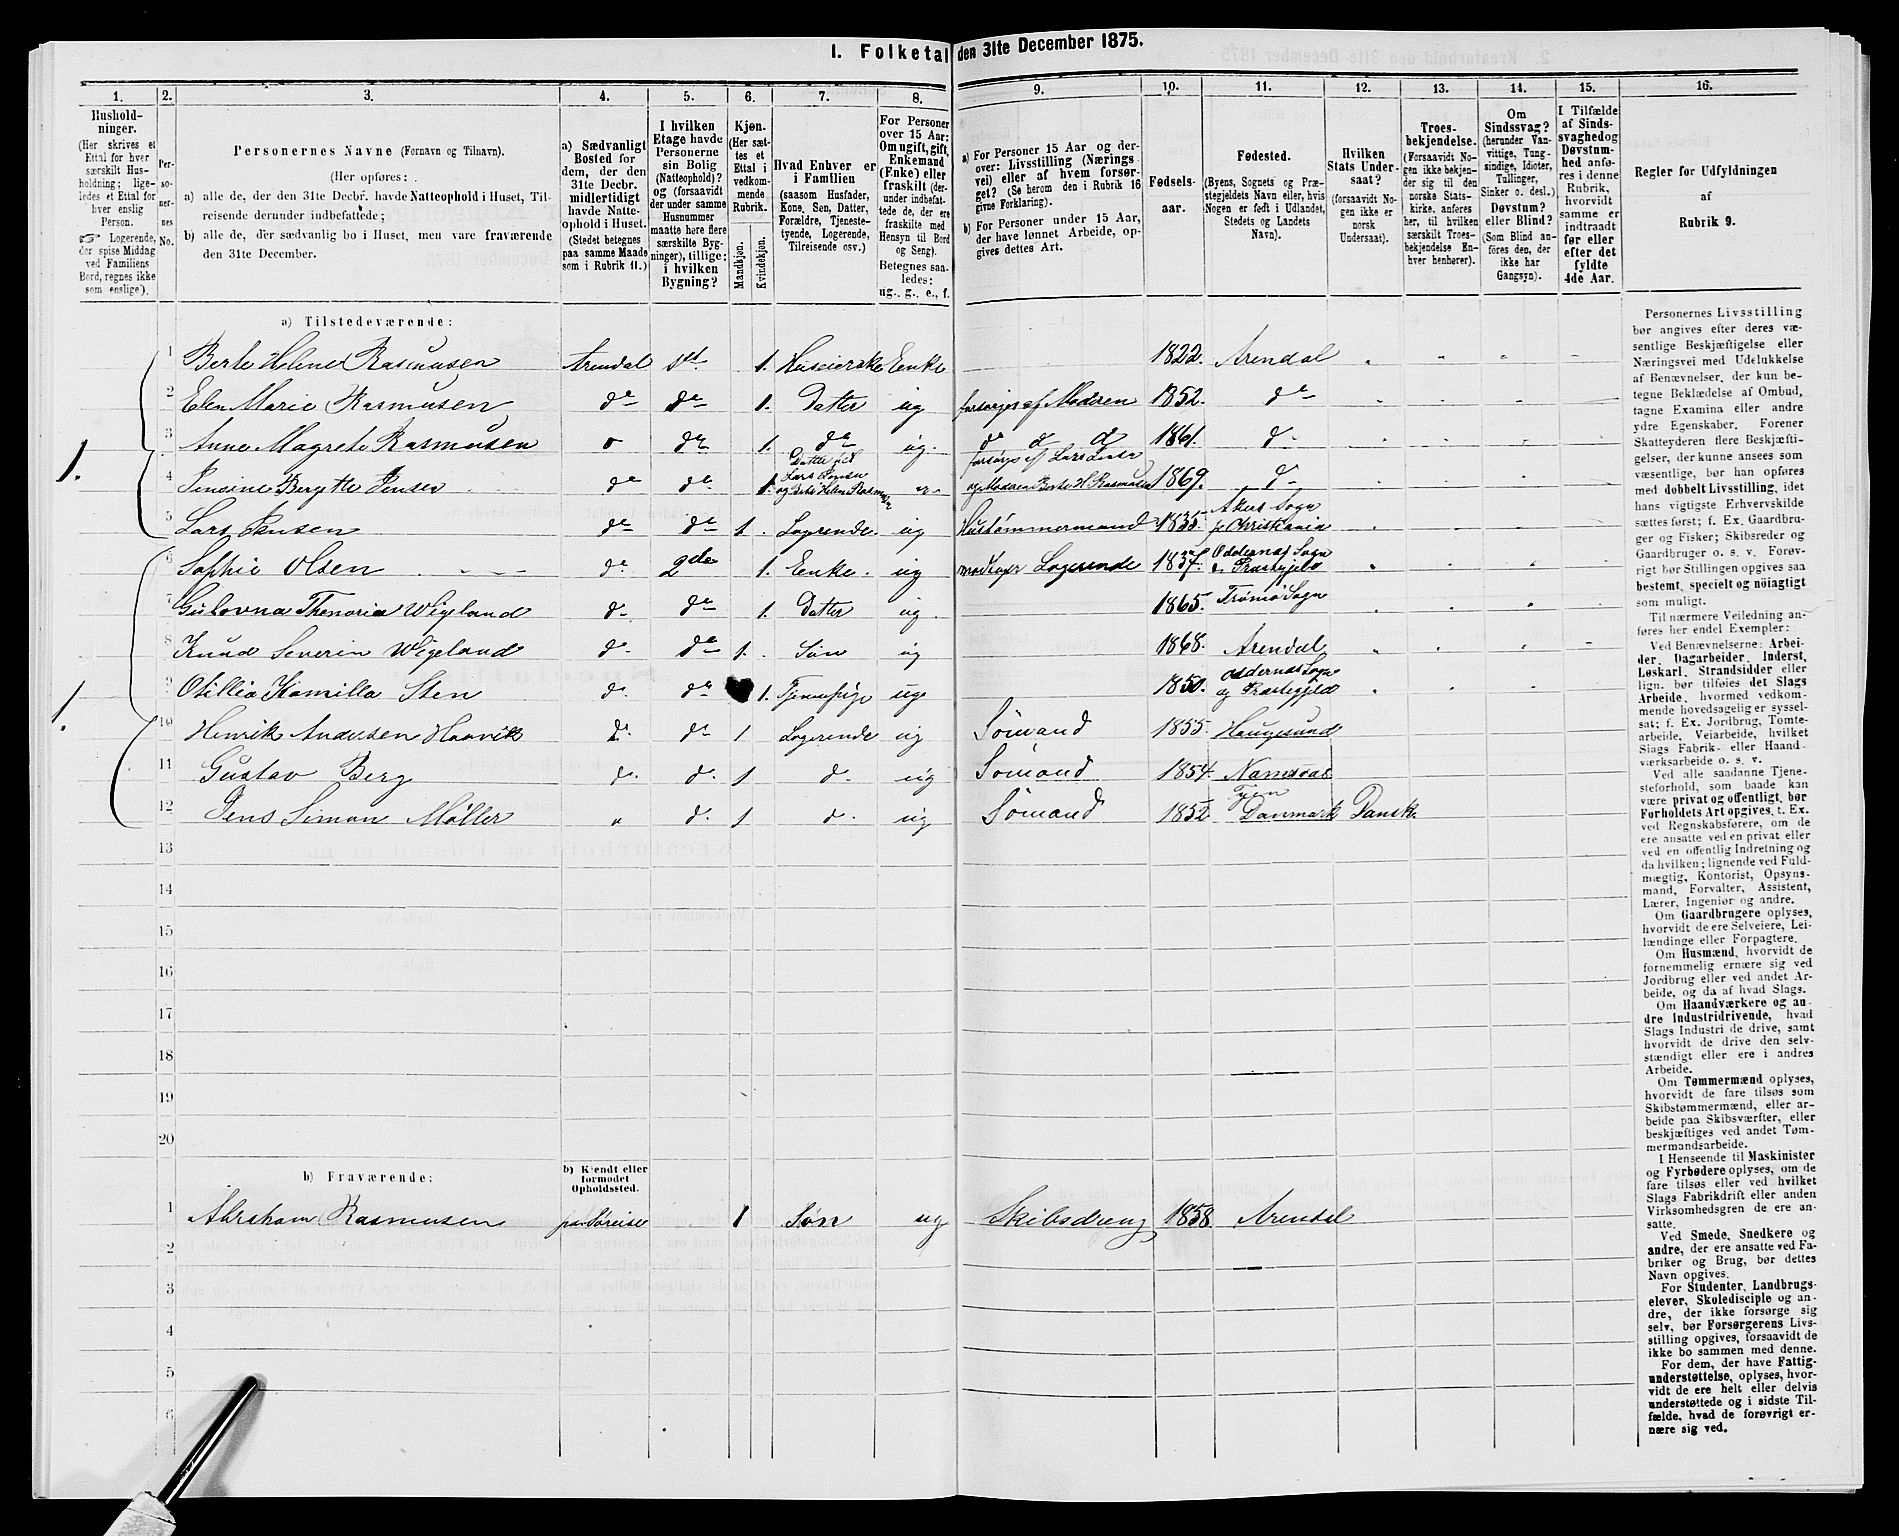 I. Folketal den 31te December 1875.
1. 2. 3. 4. 5. 6. 7. 8. 9. 10. 11. 12. 13. 14. 15. 16.
Hushold-
ninger.
(Her skrives et
Ettal for hver
særskilt Hus-
holdning; lige-
ledes et Ettal for
hver enslig
Person.
☞ Logerende,
der spise Middag
ved Familiens
Bord, regnes ikke
som enslige).
Per-
so-
ner-
nes
No.
Personernes Navne (Fornavn og Tilnavn).
(Her opføres:
a) alle de, der den 31te Decbr. havde Natteophold i Huset, Til-
reisende derunder indbefattede;
b) alle de, der sædvanlig bo i Huset, men vare fraværende
den 31te December.
a) Sædvanligt
Bosted for
dem, der den
31te Decbr.
midlertidigt
havde Natte-
ophold i Huset.
(Stedet betegnes
paa samme Maade
som i Rubrik 11.)
I hvilken
Etage havde
Personerne
sin Bolig
(Natteophold)?
og (forsaavidt
der under samme
Husnummer
maatte høre flere
særskilte Byg-
ninger), tillige:
i hvilken
Bygning?
Kjøn.
(Her sæt-
tes et
Ettal i
vedkom-
mende
Rubrik.
Mandkjøn.
Kvindekjøn.
Hvad Enhver er
i Familien
(saasom Husfader,
Kone, Søn, Datter,
Forældre, Tjeneste-
tyende, Logerende,
Tilreisende osv.)
For Personer
over 15 Aar:
Om ugift, gift,
Enkemand
(Enke) eller
fraskilt (der-
under indbefat-
tede de, der ere
fraskilte med
Hensyn til Bord
og Seng).
Betegnes saa-
ledes:
ug., g., e., f.
a) For Personer 15 Aar og der-
over: Livsstilling (Nærings-
vei) eller af hvem forsør-
get? (Se herom den i Rubrik 16
givne Forklaring).
b) For Personer under 15 Aar,
der have lønnet Arbeide, op-
gives dettes Art.
Fødsels-
aar.
Fødested.
(Byens, Sognets og Præ-
stegjeldets Navn eller, hvis
Nogen er født i Udlandet,
Stedets og Landets
Navn).
Hvilken
Stats Under-
saat?
(forsaavidt No-
gen ikke er
norsk
Undersaat).
Troes-
bekjendelse.
(Forsaavidt No-
gen ikke bekjen-
der sig til den
norske Stats-
kirke, anføres
her, til hvilken
særskilt Troes-
bekjendelse En-
hver henhører).
Om
Sindssvag?
(herunder Van-
vittige, Tung-
sindige, Idioter,
Tullinger,
Sinker o. desl.)
Døvstum?
eller Blind?
(Som Blind an-
føres den, der
ikke har
Gangsyn).
I Tilfælde
af Sinds-
svaghed og
Døvstum-
hed anfø-
res i denne
Rubrik,
hvorvidt
samme er
indtraadt
før eller
efter det
fyldte
4de Aar.
Regler for Udfyldningen
af
Rubrik 9.
a) Tilstedeværende:
1 Berte Helene Rasmusen Arendal 1 Huseierske Enke 1822. Arendal
2 Elen Marie Rasmusen de de 1. Datter ug forsørges af Modren 1852. de
1. 3 Anne Magrete Rasmusen de 1. de ug. 1861. d
4 Jensine Jensen de de. 1. Datter Lars Jensen og Berte Helen Rasmusen forsørges af Lars Jensen og Modren Berte H. Rasmusen 1869. d
5 Lars Jensen de de 1. Logerende. ug Hustømmermand 1835. Akers Sogn Christiania
6 Sophie Olsen de 2den 1. Enke. ug modtager Logerende 1837 Oddernæs Sogn Præstegjeld
7 Gulovna Thenoria Wigeland d de 1. Datter ug. 1865. Tromø Sogn
8 Knud Severin Wigeland d de 1. Søn ug 1868. Arendal
9 Otillia Kamilla Sten d. de 1. Tjenestpige ug 1850. Oddernæs Sogn og Præstegjeld
1. 10 Henrik Andersen Haavik d. de 1 Logerende ug Sømand 1855. Haugesund
11 Gustav Berg d. d. 1 d. ug Sømand 1854. Namsos
12 Jens Simon Møller „ d. 1 d. ug Sømand 1852 Fyen Danmark Dansk.
13
14
15
16
17
18
19
20
b) Fraværende:
b) Kjendt eller
formodet
Opholdssted.
1 Abraham Rasmusen paa Søreise 1 Søn ug Skibsdreng 1858. Arendal
2
3
4
5
6
Personernes Livsstilling
bør angives efter deres væ-
sentlige Beskjæftigelse eller
Næringsvei med Udelukkelse
af Benævnelser, der kun be-
tegne Beklædelse af Ombud,
tagne Examina eller andre
ydre Egenskaber. Forener
Skatteyderen flere Beskjæfti-
gelser, der kunne ansees som
væsentlige, bør han opføres
med dobbelt Livsstilling, idet
hans vigtigste Erhvervskilde
sættes først; f. Ex. Gaardbru-
ger og Fisker; Skibsreder og
Gaardbruger o. s. v. Forøv-
rigt bør Stillingen opgives saa
bestemt, specielt og nöiagtigt
som muligt.
Til nærmere Veiledning an-
føres her endel Exempler:
Ved Benævnelserne: Arbei-
der, Dagarbeider, Inderst,
Løskarl, Strandsidder eller
lign. bør tilføies det Slags
Arbeide, hvormed vedkom-
mende hovedsagelig er syssel-
sat; f. Ex. Jordbrug, Tomte-
arbeide, Veiarbeide, hvilket
Slags Fabrik- eller Haand-
værksarbeide o. s. v.
Ved alle saadanne Tjene-
steforhold, som baade kan
være privat og offentligt, bør
Forholdets Art opgives, t. Ex.
ved Regnskabsførere, om de
ere ansatte ved en privat eller
ved en offentlig Indretning og
da hvilken; lignende ved Fuld-
mægtig, Kontorist, Opsyns-
mand, Forvalter, Assistent,
Lærer, Ingeniør og andre.
Om Gaardbrugere oplyses,
hvorvidt de ere Selveiere, Lei-
lændinge eller Forpagtere.
Om Husmænd, hvorvidt de
fornemmelig ernære sig ved
Jordbrug eller ved andet Ar-
beide, og da af hvad Slags.
Om Haandværkere og an-
dre Industridrivende, hvad
Slags Industri de drive, samt
hvorvidt de drive den selv-
stændigt eller ere i andres
Arbeide.
Om Tømmermænd oplyses,
hvorvidt de fare tilsøs som
Skibstømmermænd, eller ar-
beide paa Skibsværfter, eller
beskjæftiges ved andet Tøm-
mermandsarbeide.
I Henseende til Maskinister
og Fyrbødere oplyses, om de
fare tilsøs eller ved hvilket
Slags Fabrikdrift eller anden
Virksomhedsgren de ere an-
satte.
Ved Smede, Snedkere og
andre, der ere ansatte ved Fa-
briker og Brug, bør dettes
Navn opgives.
For Studenter, Landbrugs-
elever, Skoledisciple og an-
dre, der ikke forsørge sig
selv, bør Forsørgerens Livs-
stilling opgives, forsaavidt de
ikke bo sammen med denne.
For dem, der have Fattig-
understøttelse, oplyses, hvor-
vidt de ere helt eller delvis
understøttede og i sidste Til-
fælde, hvad de forøvrigt er-
nære sig ved.